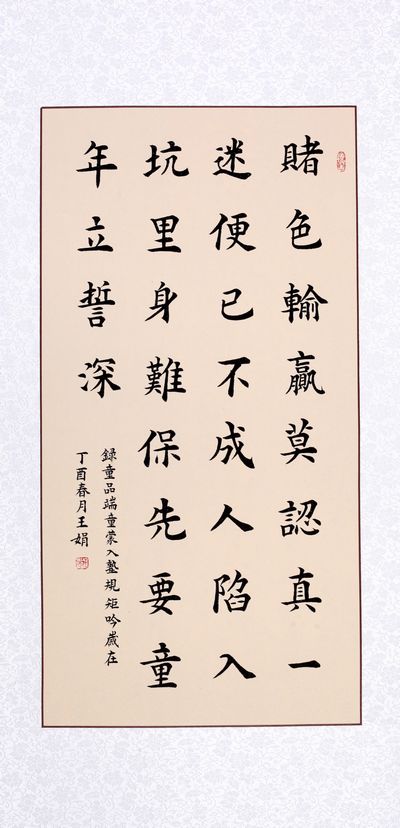 賭色輸贏莫認真一
迷便已不成人陷入
坑里身難保先要童
年立誓深
録童品端童蒙入塾規矩吟歲在
丁酉春月王娟